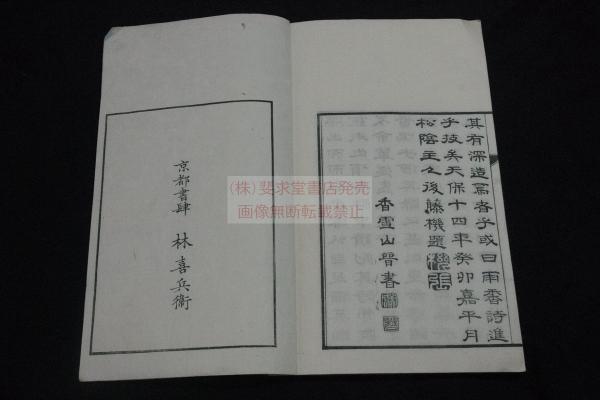 其有深造焉者乎或曰雨香詩進
乎技矣天保十四年癸卯嘉平月
松陰主人後藤機題
香雪山晉書
京都書肆 林 喜兵衛
(株)斐求堂書店発売
画像無断転載禁止